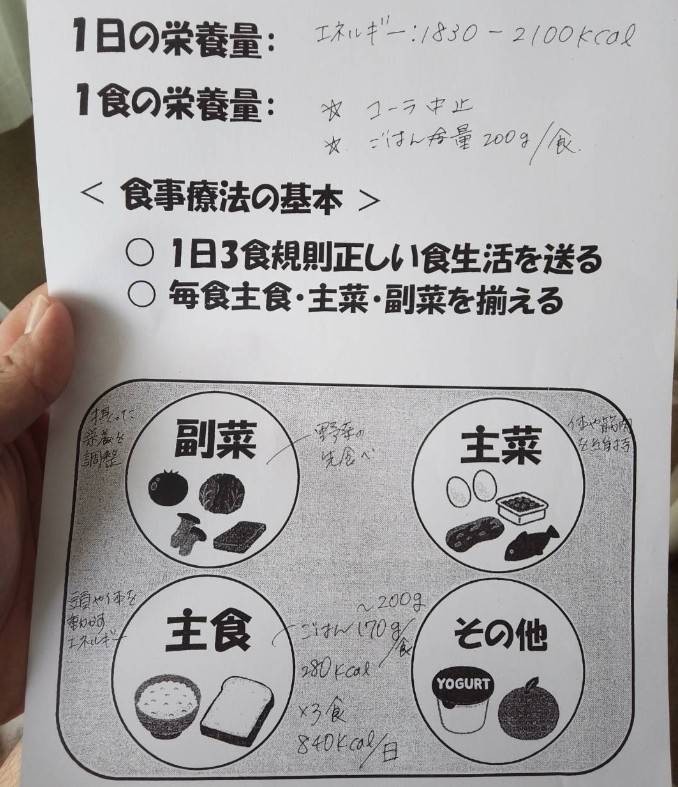 1日の栄養量: エネルギー:1830-2100kcal
1食の栄養量: ☆ コーラ中止
☆ ごはん 量200g/食
<食事療法の基本>
○ 1日3食規則正しい食生活を送る
○ 毎食主食・主菜・副菜を揃える
栄養を
調整
副菜
野菜の
先食べ
主菜
頭や体を
動かす
エネルギー
主食
~200g
ごはん170g/食
280kcal
×3食
840kcal/日
その他
YOGURT